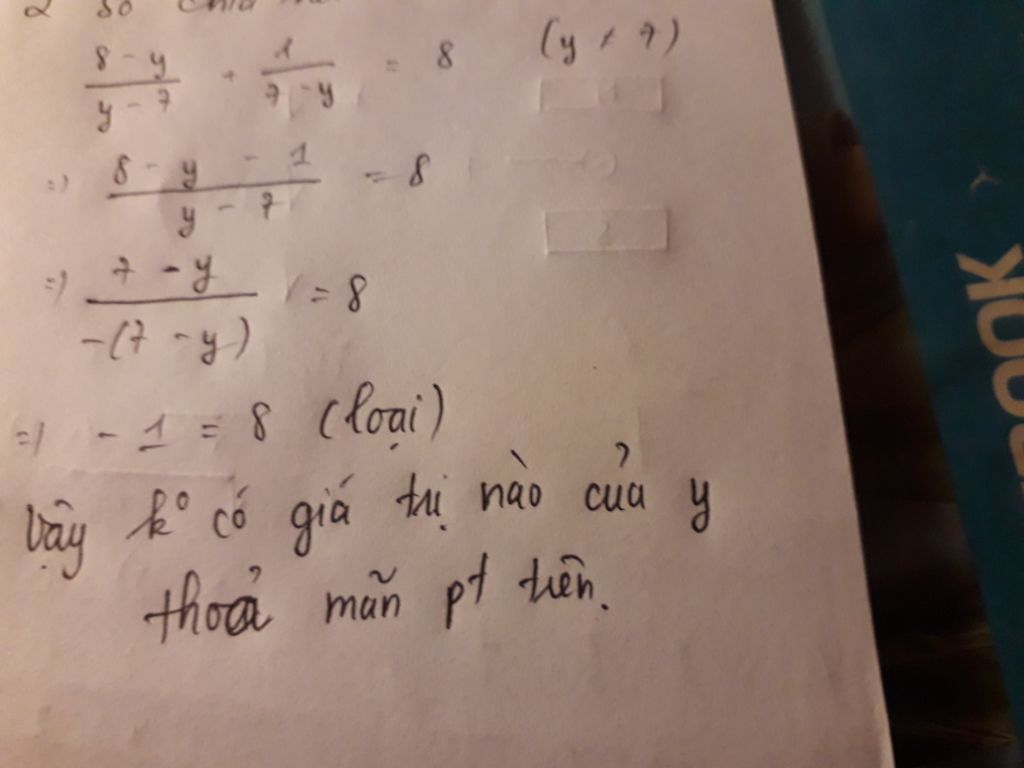 2 số chia
8 - y / y - 7 + 1 / 7 - y = 8 (y ≠ 7)
=> 8 - y - 1 / y - 7 = 8
=> 7 - y / -(7 - y) = 8
=> - 1 = 8 (loại)
Vậy k° có giá trị nào của y
thoả mãn pt trên.
OOK